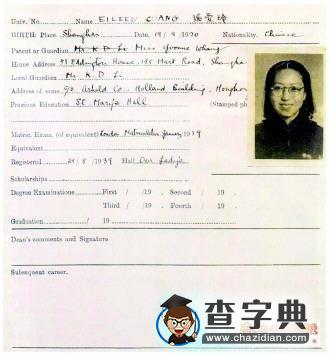 Univ. No. Name EILEEN CHANG 張愛玲
BIRTH: Place. Shanghai 19/9/1920 Nationality. Chinese
Parent or Guardian. Mr. K D Li Miss Yvonne Whang
Home Address House, 195 Hart Road, Shanghai
Local Guardian. Mr. K. D. Li
Address of same c/o Arnhold Co., Holland Building, Hongkong
Previous Education St. Maria Hall (Stamped ph
Matric. Exam. (or equivalent) London Matriculation January 1939
Equivalent
Registered 29/8/1939 Hall Our Lady's
Scholarships
Degree Examinations First / /19 . Second / /19 .
Third / /19 . Fourth / /19 .
Graduation / 19
Dean's comments and Signature
Subsequent career.
查字典
www.chazidian.com